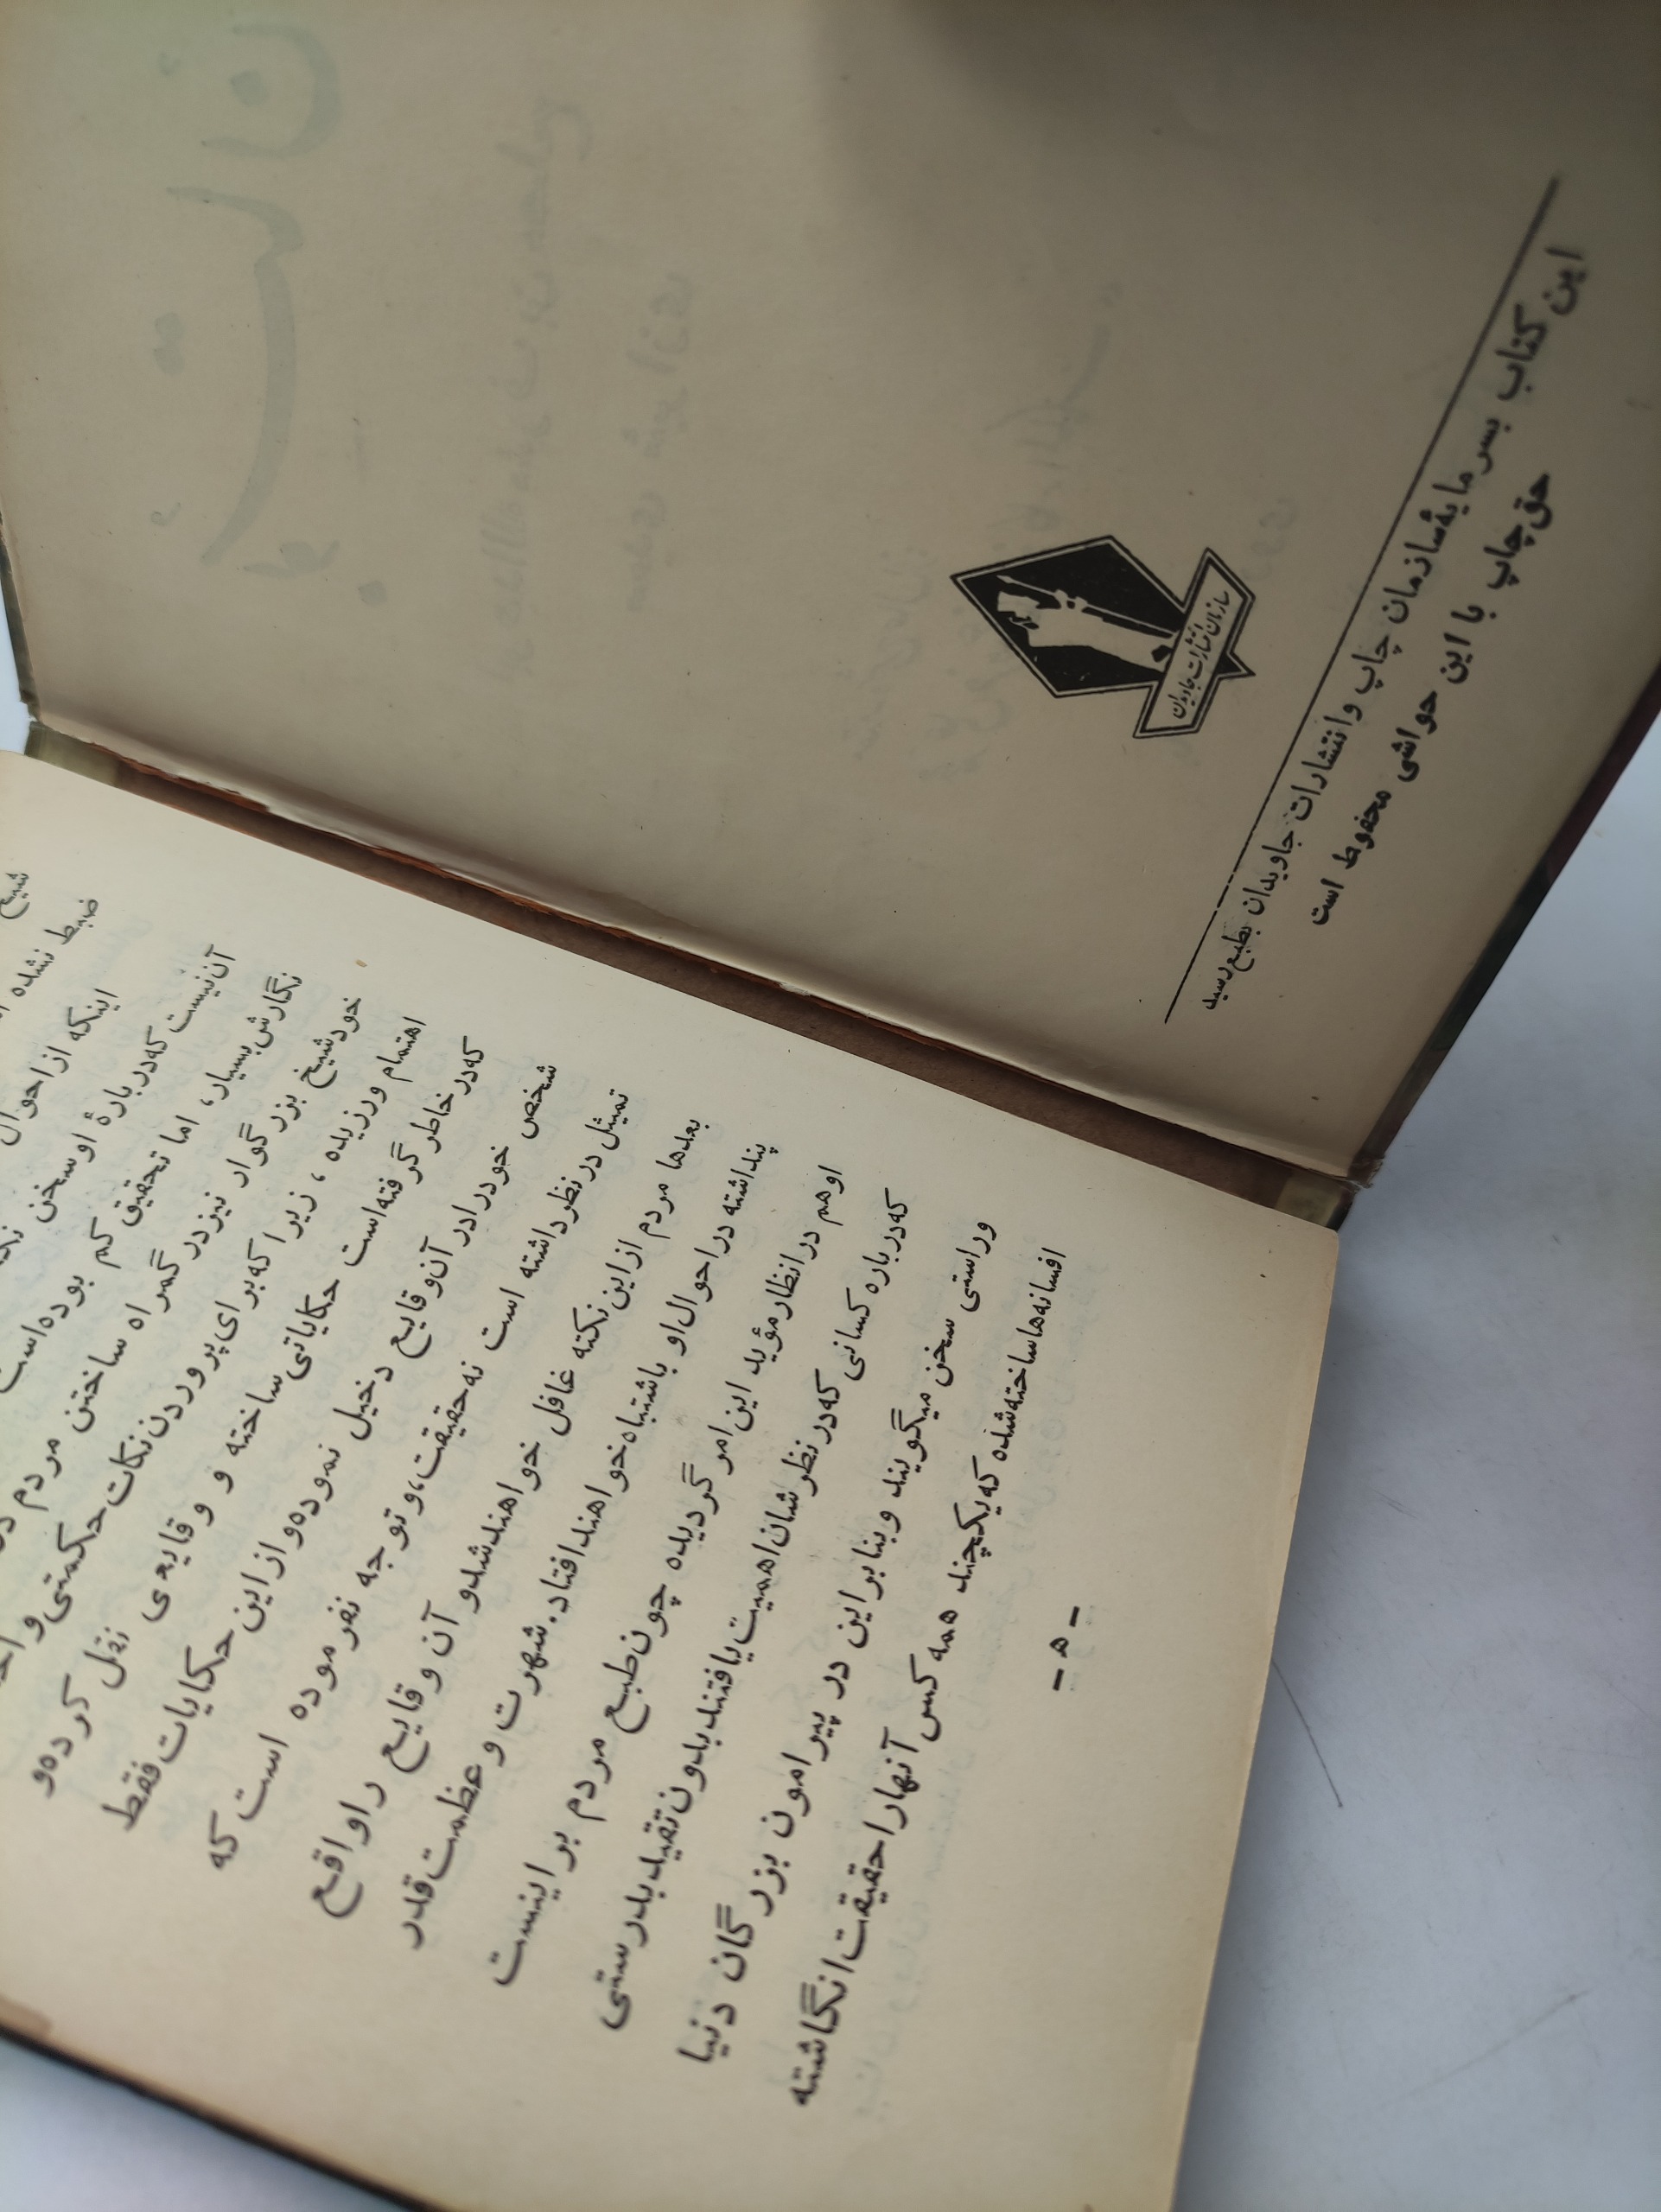 این کتاب بسرمایهٔ سازمان چاپ و انتشارات جاویدان بطبع رسید
حق چاپ با این حواشی محفوظ است
سازمان انتشارات جاویدان
شیخ
ضبط نشده
اینکه از احوال
آن نیست که در بارهٔ او سخن
نگارش بسیار، اما تحقیق کم بوده است
خود شیخ بزرگوار نیز در گمراه ساختن مردم
اهتمام ورزیده، زیرا که برای پروردن نکات حکمتی و
که در خاطر گرفته است حکایاتی ساخته و وقایعی نقل کرده و
شخص خود را در آن وقایع دخیل نموده و از این حکایات فقط
تمیثل در نظر داشته است نه حقیقت، و توجه نفرموده است که
بعدها مردم از این نکته غافل خواهند شد و آن وقایع را واقع
پنداشته در احوال او باشتباه خواهند افتاد. شهرت و عظمت قدر
او هم در انظار مؤید این امر گردیده چون طبع مردم بر اینست
که در باره کسانی که در نظرشان اهمیت یافتند بدون تقید بدرستی
و راستی سخن میگویند و بنا بر این در پیرامون بزرگان دنیا
افسانه‌ها ساخته شده که یکچند همه کس آنها را حقیقت انگاشته
- ه -